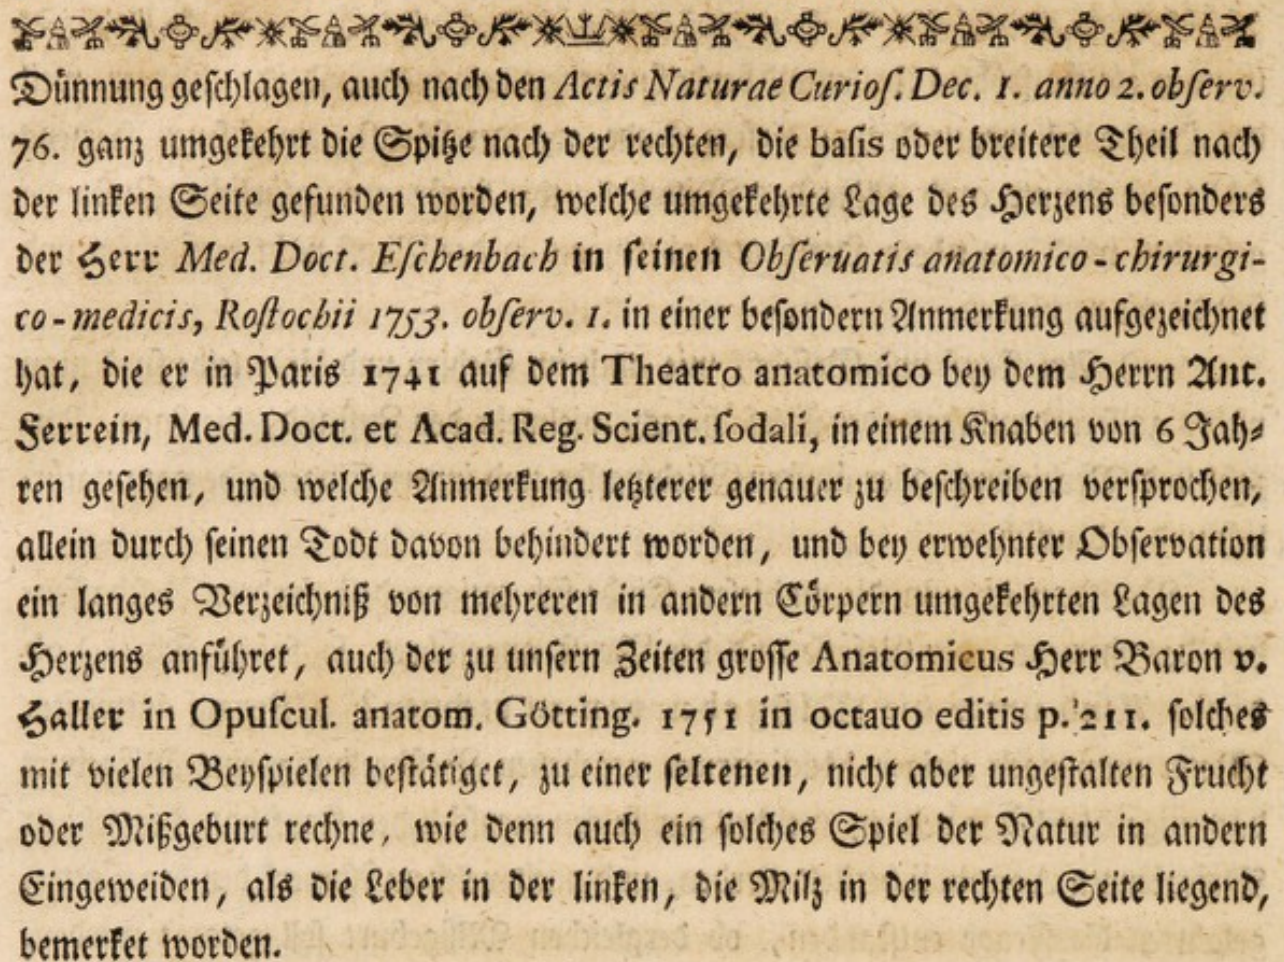 Dünnung geſchlagen, auch nach den Actis Naturae Curioſ. Dec. 1. anno 2. obſerv.
76. ganz umgekehrt die Spitze nach der rechten, die baſis oder breitere Theil nach
der linken Seite gefunden worden, welche umgekehrte Lage des Herzens beſonders
der Herr Med. Doct. Eſchenbach in ſeinen Obſeruatis anatomico-chirurgi-
co-medicis, Roſtochii 1753. obſerv. 1. in einer beſondern Anmerkung aufgezeichnet
hat, die er in Paris 1741 auf dem Theatro anatomico bey dem Herrn Ant.
Ferrein, Med. Doct. et Acad. Reg. Scient. ſodali, in einem Knaben von 6 Jah⸗
ren geſehen, und welche Anmerkung letzterer genauer zu beſchreiben verſprochen,
allein durch ſeinen Todt davon behindert worden, und bey erwehnter Obſervation
ein langes Verzeichniß von mehreren in andern Cörpern umgekehrten Lagen des
Herzens anführet, auch der zu unſern Zeiten groſſe Anatomicus Herr Baron v.
Haller in Opuſcul. anatom. Götting. 1751 in octauo editis p. 211. ſolches
mit vielen Beyſpielen beſtätiget, zu einer ſeltenen, nicht aber ungeſtalten Frucht
oder Mißgeburt rechne, wie denn auch ein ſolches Spiel der Natur in andern
Eingeweiden, als die Leber in der linken, die Milz in der rechten Seite liegend,
bemerket worden.